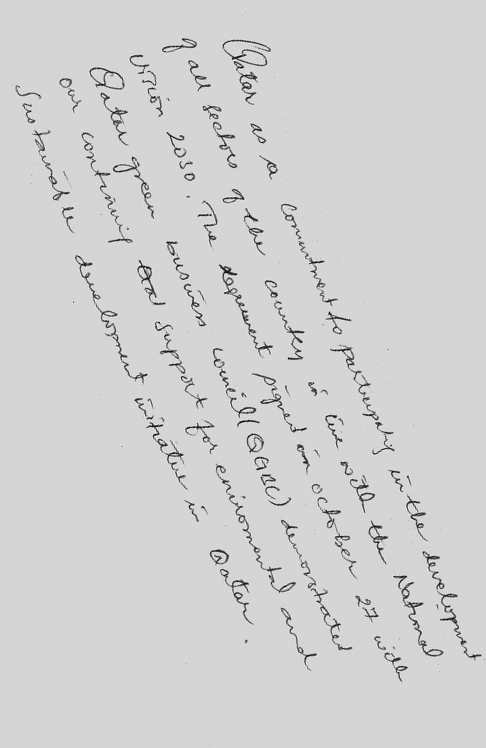 Qatar as a commitment to participating in the development
of all sectors of the country in line with the National
vision 2030. The agreement signed on october 27 with
Qatar green business council (QGBC) demonstrated
our continuing support for enviromental and
sustainable development initiative in Qatar.